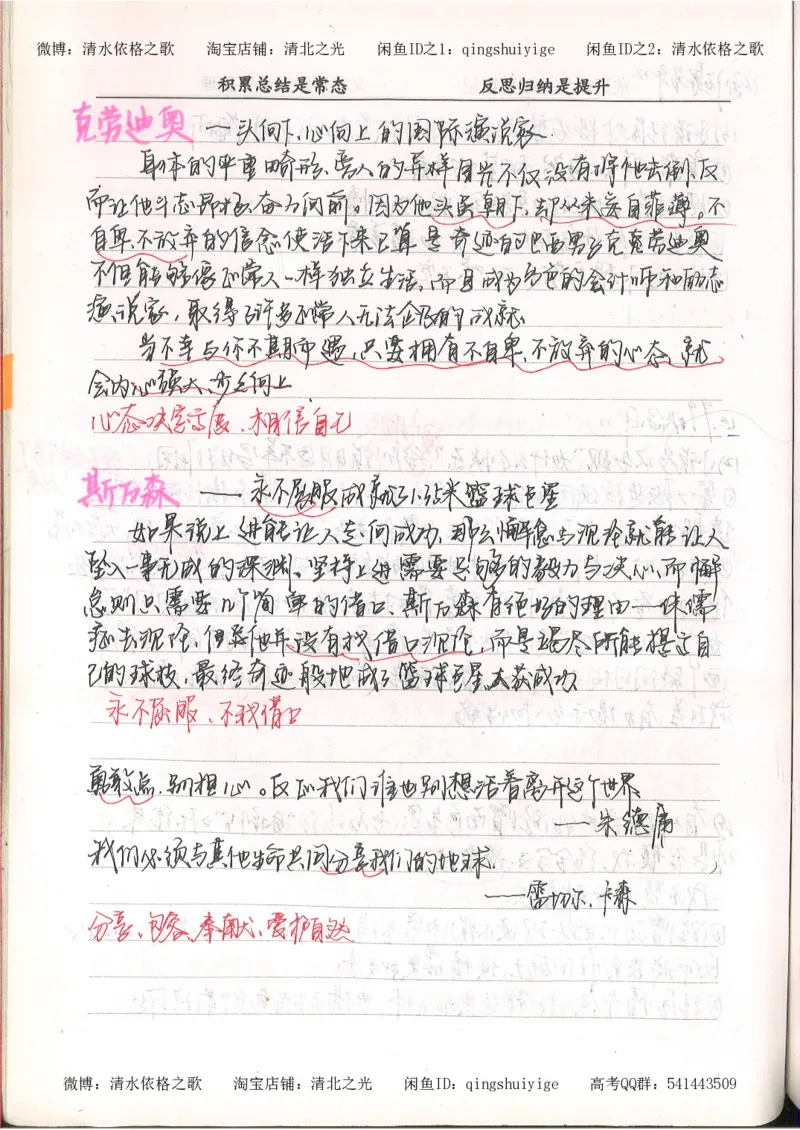 微博：清水依格之歌 淘宝店铺：清北之光 闲鱼ID之1：qingshuiyige 闲鱼ID之2：清水依格之歌
积累总结是常态 反思归纳是提升
克劳迪奥 —头向下,心向上的国际演说家.
身体的严重畸形、旁人的异样目光不仅没有将他击倒,反
而让他斗志昂扬奋力向前。因为他头虽朝下,却从未妄自菲薄。不
自卑、不放弃的信念使活下来已算是奇迹的巴西男子克劳迪奥
不但能够像正常人一样独立生活,而且成为出色的会计师和励志
演说家,取得了许多正常人无法企及的成就.
当不幸与你不期而遇,只要拥有不自卑、不放弃的心态,就
会内心强大,步之向上
心态决定高度、相信自己
斯万森 ——永不屈服成就1.35米篮球巨星
如果说上进能让人走向成功,那么懈怠与沉沦就能让人
坠入一事无成的深渊。坚持上进需要足够的毅力与决心,而懈
怠则只需要几个简单的借口。斯万森有绝好的理由—侏儒
症去沉沦,但是他并没有找借口沉沦,而是竭尽所能提高自
己的球技,最终奇迹般地成了篮球巨星,大获成功.
永不屈服、不找借口
勇敢点,别担心。反正我们谁也别想活着离开这个世界.
——朱德庸
我们必须与其他生命共同分享我们的地球.
——雷切尔.卡森
分享、包容、奉献、爱护自然
微博：清水依格之歌 淘宝店铺：清北之光 闲鱼ID：qingshuiyige 高考QQ群：541443509